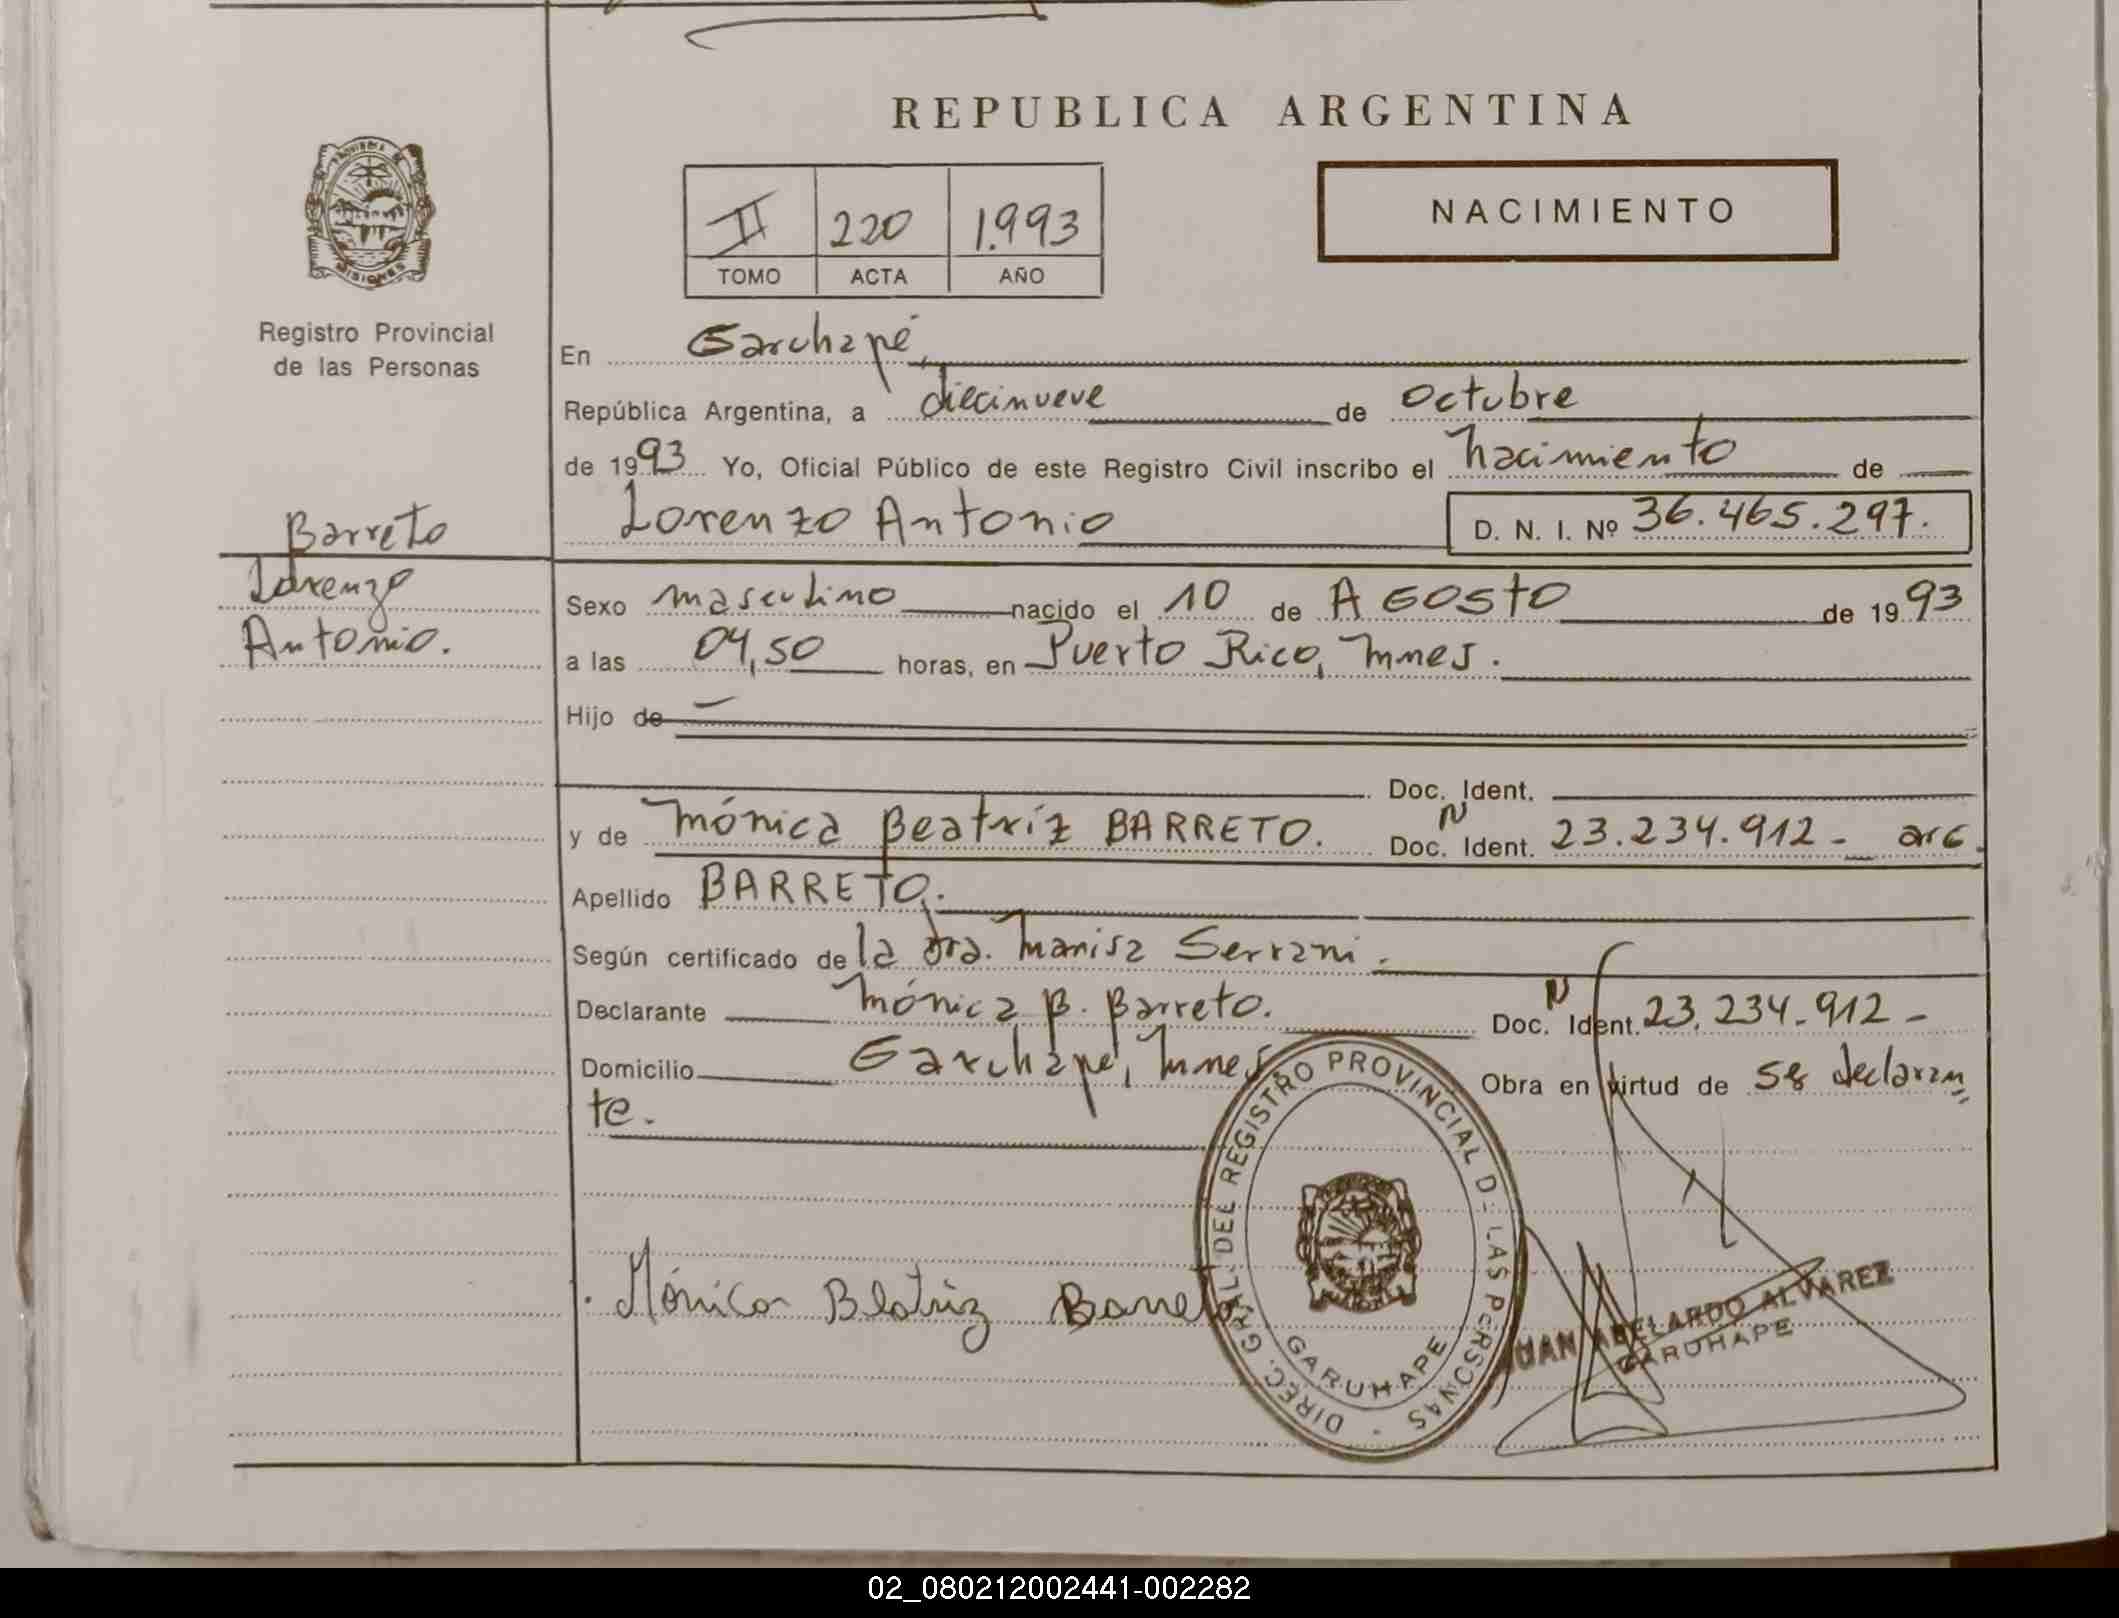 REPUBLICA ARGENTINA
PROVINCIA DE
MISIONES
Registro Provincial
de las Personas
II 220 1.993
TOMO ACTA AÑO
NACIMIENTO
En Garuhapé,
República Argentina, a diecinueve de Octubre
de 1993 Yo, Oficial Público de este Registro Civil inscribo el nacimiento de
Lorenzo Antonio D. N. I. Nº 36.465.297.
Barreto
Lorenzo
Antonio.
Sexo masculino nacido el 10 de AGOSTO de 1993
a las 04,50 horas, en Puerto Rico, Mnes.
Hijo de
Doc. Ident.
y de Mónica Beatríz BARRETO. Doc. N Ident. 23.234.912- arG.
Apellido BARRETO.
Según certificado de la dra. Marisa Serrani.
Declarante Mónica B. Barreto. Doc. N Ident. 23.234.912-
Domicilio Garuhapé, Mnes Obra en virtud de ser declaran
te.
Mónica Beatriz Barreto
DIREC. GRAL. DEL REGISTRO PROVINCIAL D- LAS PERSONAS
GARUHAPE
JUAN ABELARDO ALVAREZ
GARUHAPE
02_080212002441-002282